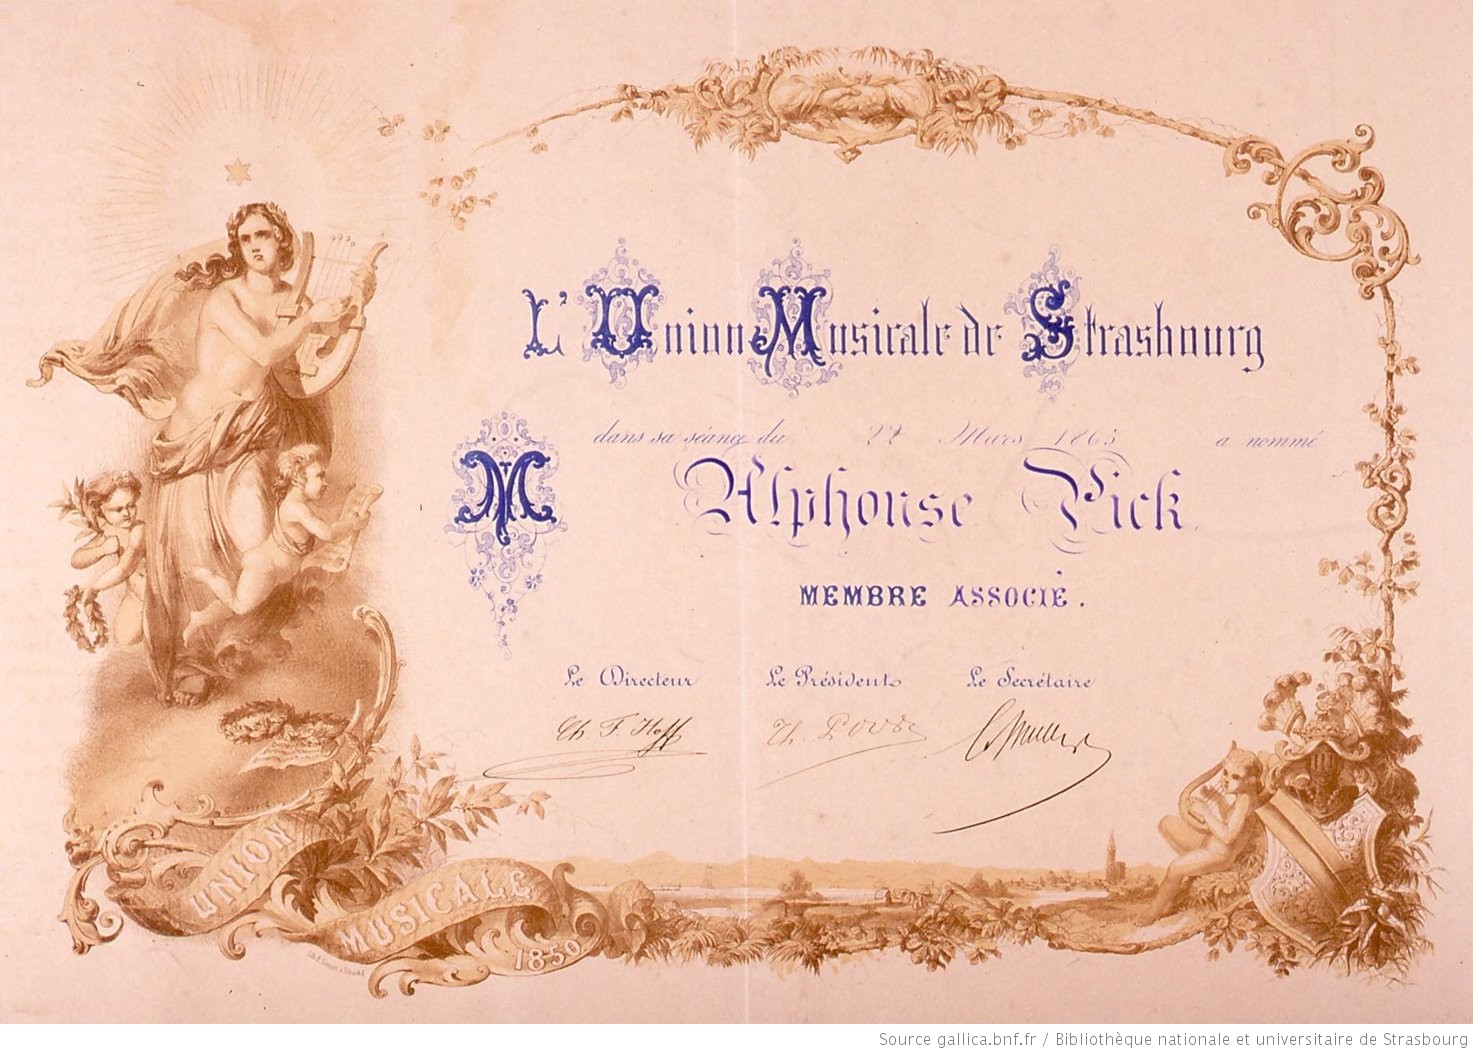 L'Union Musicale de Strasbourg
dans sa séance du 22 Mars 1865 a nommé
M Alphonse Pick
MEMBRE ASSOCIÉ.
Le Directeur Le Président Le Secrétaire
Ch. F. Hoff Th.
UNION
MUSICALE
1850
Source gallica.bnf.fr / Bibliothèque nationale et universitaire de Strasbourg